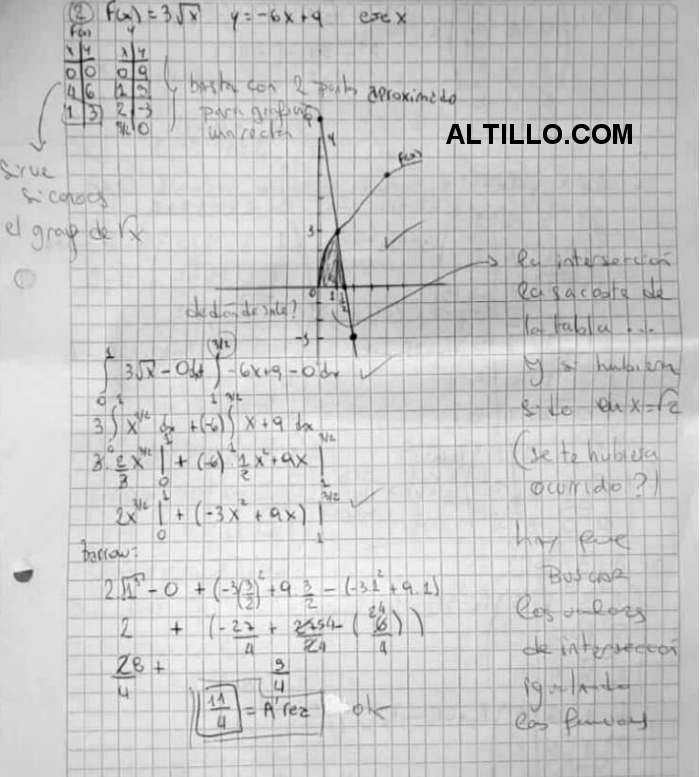 ② f(x) = 3√x   y = -6x+9   eje x
f(x)   y
x y   x y
0 0   0 9
4 6   1 3
1 3   2 -3
3/2 0
basta con 2 puntos aproximado
para graficar
una recta
ALTILLO.COM
sirve
si conoces
el graf de √x
y
f(x)
3
0 1 3/2
-3
de dónde sale?
la intersección
la sacaste de
la tabla...
y si hubiera
sido en x=√2
(se te hubiera
ocurrido?)
hay que
Buscar
los valores
de intersección
igualando
las funciones
∫₀¹ 3√x - 0 dx + ∫₁^(3/2) -6x+9-0 dx
3∫₀¹ x^(1/2) dx + (-6)∫₁^(3/2) x + 9 dx
3·2/3 x^(3/2) |₀¹ + (-6) 1/2 x² + 9x |₁^(3/2)
2x^(3/2) |₀¹ + (-3x² + 9x) |₁^(3/2)
barrow:
2·√1³ - 0 + (-3(3/2)² + 9·3/2 - (-3·1² + 9·1)
2 + (-27/4 +
8/4 + 3/4
11/4 = A'rea   ok